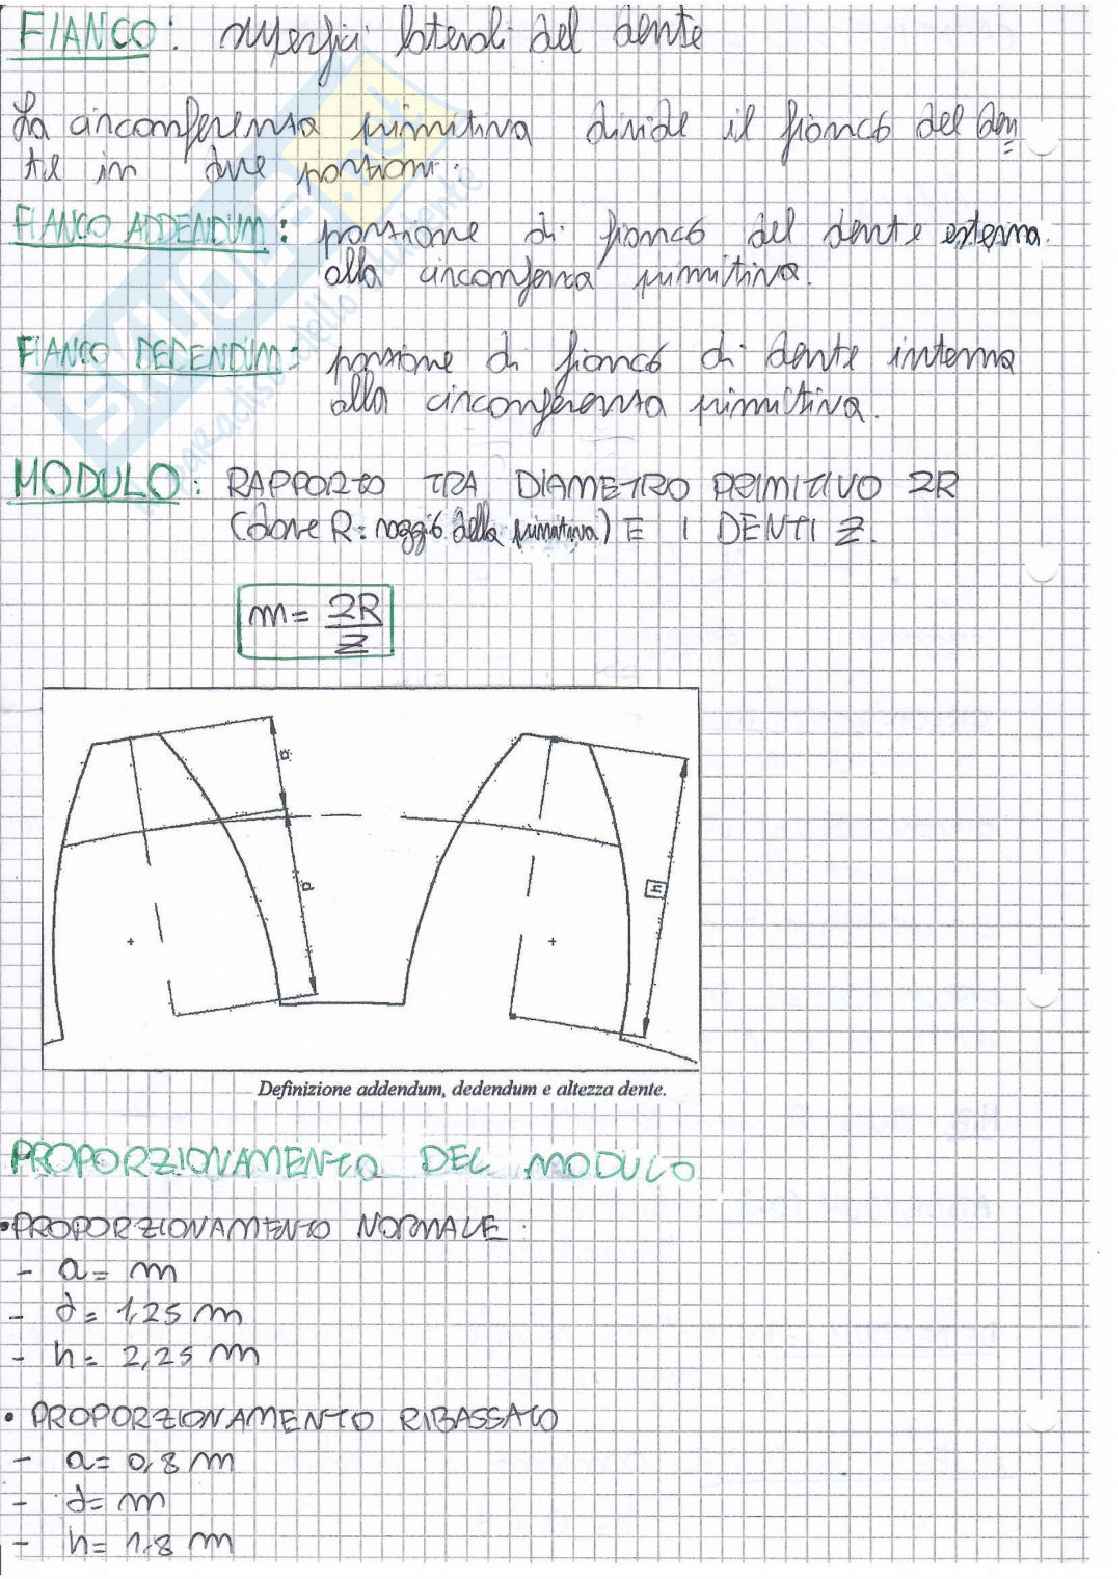 FIANCO: superfici laterali del dente
La circonferenza primitiva divide il fianco del den
te in due porzioni:
FIANCO ADDENDUM: porzione di fianco del dente esterna
alla circonferenza primitiva.
FIANCO DEDENDUM: porzione di fianco di dente interna
alla circonferenza primitiva.
MODULO: RAPPORTO TRA DIAMETRO PRIMITIVO 2R
(dove R= raggio della primitiva) E I DENTI Z.
m= 2R
Z
a
d
h
Definizione addendum, dedendum e altezza dente.
PROPORZIONAMENTO DEL MODULO
• PROPORZIONAMENTO NORMALE:
- a= m
- d= 1,25 m
- h= 2,25 m
• PROPORZIONAMENTO RIBASSATO
- a= 0,8 m
- d= m
- h= 1,8 m